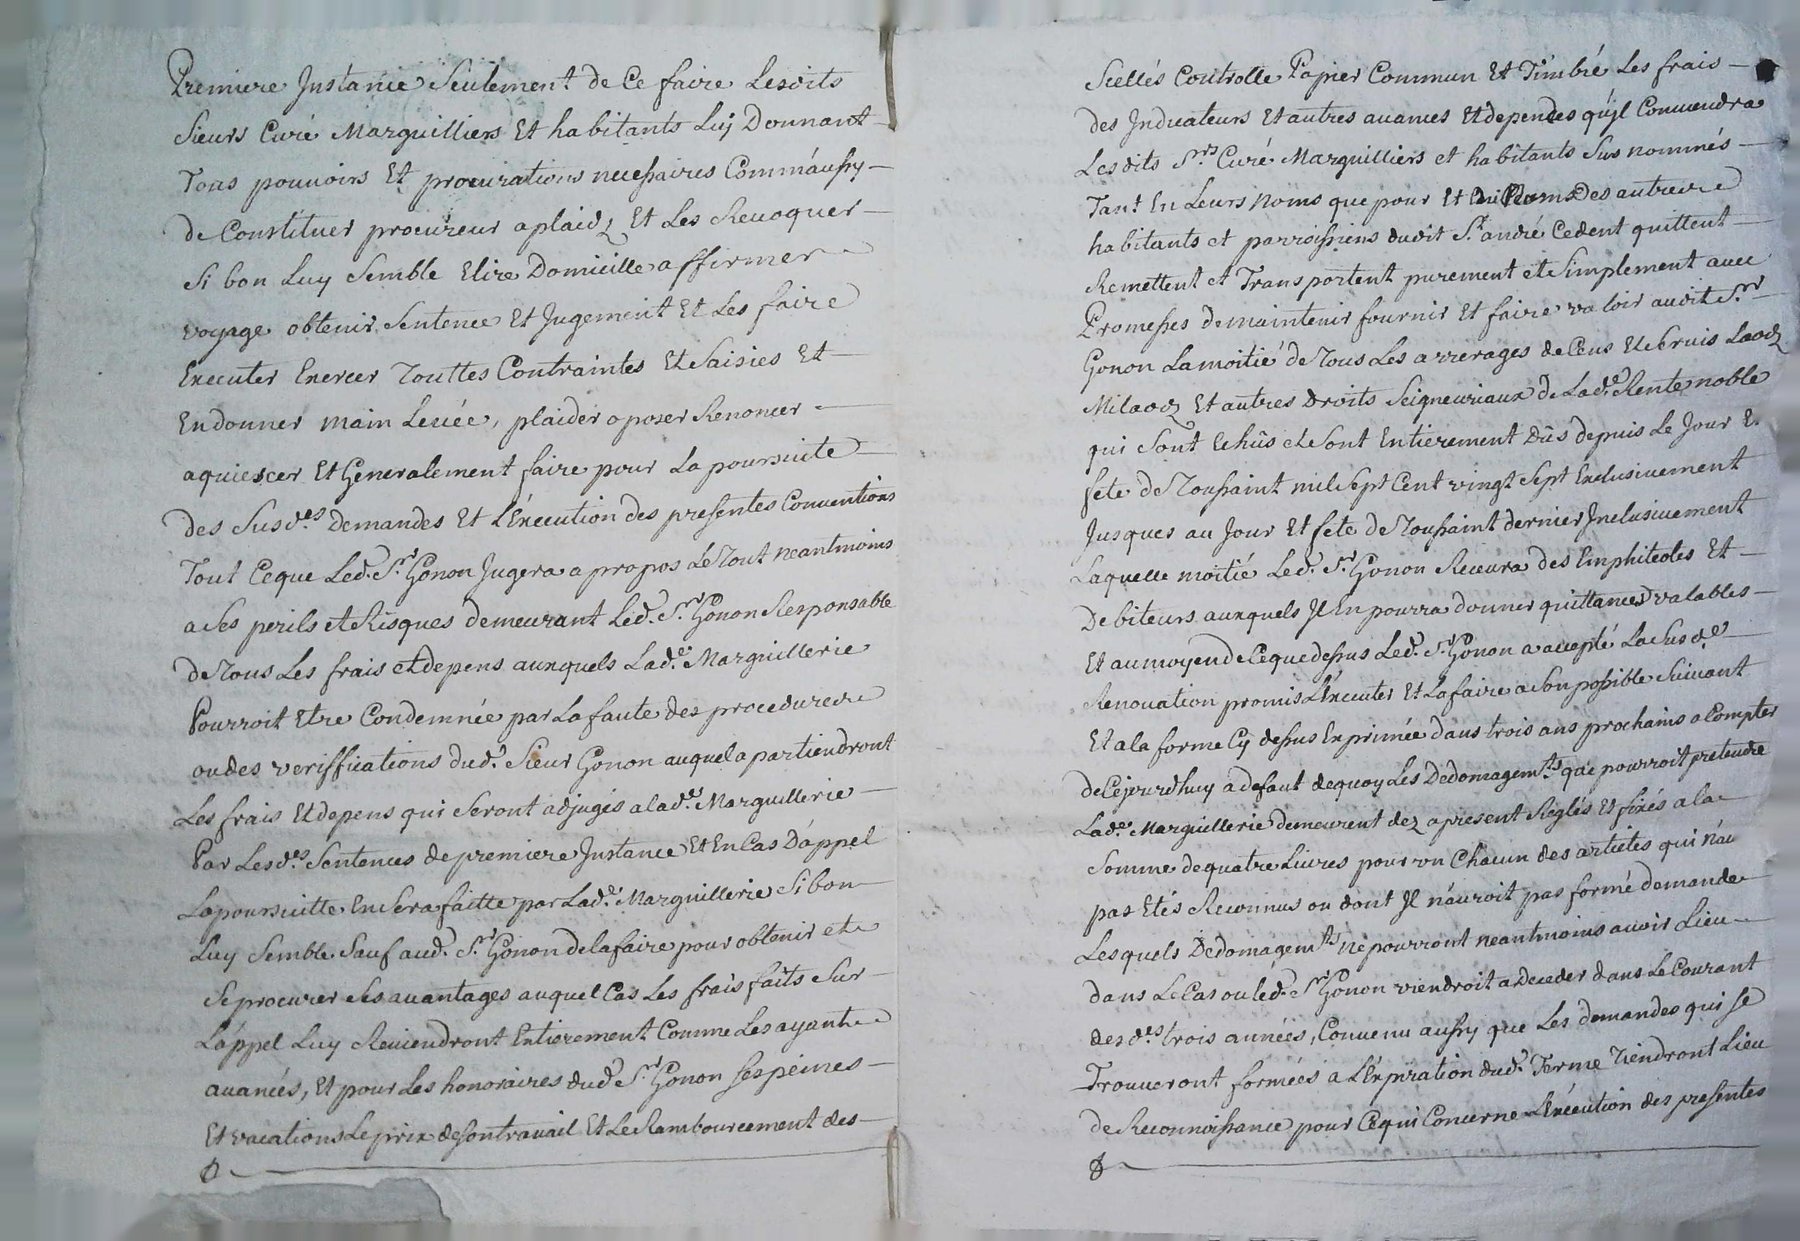 Premiere Instance Seulemen.t de Ce faire Lesdits
Sieurs Curé Marguilliers Et habitants Luy Donnant
Tous pouuoirs Et procurations necessaires Comm'aussy
de Constituer procureur a plaidz Et Les Reuoquer
Si bon Luy Semble Elire Domicille affirmer
voyage obtenir Sentence Et Jugement Et Les faire
Executer Exercer Touttes Contraintes Et Saisies Et
En donner main Leuée, plaider oposer Renoncer
aquiescer Et Generalement faire pour La poursuite
des Susd.es demandes Et L'Execution des presentes Conuentions
Tout Ceque Led. S.r Gonon Jugera a propos Le Tout neantmoins
a Ses perils et Risques demeurant Led. S.r Gonon Responsable
de Tous Les frais et depens auxquels Lad.e Marguillerie
Pourroit Etre Condemnée par La faute des procedures
ou des veriffications dud. Sieur Gonon auquel apartiendront
Les frais Et depens qui Seront adjugés a lad.e Marguillerie
Par Lesd.es Sentences de premiere Instance Et En Cas D'appel
La poursuitte En Sera faitte par Lad.e Marguillerie Si bon
Luy Semble Sauf aud. S.r Gonon de la faire pour obtenir et
Se procurer Ses auantages auquel Cas Les frais faits Sur
L'appel Luy Reuiendront Entierement Comme Les ayant
auancés, Et pour Les honoraires dud. S.r Gonon Ses peines
Et vacations Le prix de Son trauail Et Le Rambourcement des
Scellés Controlle Papier Commun Et Timbré Les frais
des Indicateurs Et autres auances Et depences qu'yl Conuiendra
Lesdits S.rs Curé Marguilliers et habitants Sus nommés
Tan.t En Leurs Noms que pour Et Noms Des autres
habitants et parroissiens dudit S.t andré Cedent quittent
Remettent et Transportent purement et Simplement auec
Promesses de maintenir fournir Et faire valoir audit S.r
Gonon La moitié de Tous Les arrerages de Cens Et Seruis Laodz
Milaodz Et autres Droits Seigneuriaux de Lad.e Rente noble
qui Sont Echûs et Sont Entierement Dûs depuis Le Jour E.
fete de Toussaint mil Sept Cent vingt Sept Exclusiuement
Jusques au Jour Et fete de Toussaint dernier Inclusiuement
Laquelle moitié Led. S.r Gonon Receura des Emphiteotes Et
Debiteurs auxquels Jl En pourra donner quittances valables
Et au moyen de Ceque dessus Led. S.r Gonon a accepté La Susd.e
Renouation promis L'Executer Et La faire a Son possible Suiuant
Et a la forme Cy dessus Exprimée dans trois ans prochains a Compter
de Cejourdhuy a defaut de quoy Les Dedomagem.ts que pourroit pretendre
Lad.e Marguillerie demeurent dez apresent Reglés Et fixés a la
Somme de quatre Liures pour vn Chacun des articles qui n'au
pas Etés Reconnus ou dont Jl n'auroit pas formé demande
Lesquels Dedomagem.ts ne pourront neantmoins auoir Lieu
dans Le Cas ou led. S.r Gonon viendroit a deceder dans Le Courant
desd.es trois années, Conuenu aussy que Les demandes qui Se
Trouueront formées a L'Expiration dud. Terme Tiendront Lieu
de Reconnoissance pour Cequi Concerne L'Execution des presentes